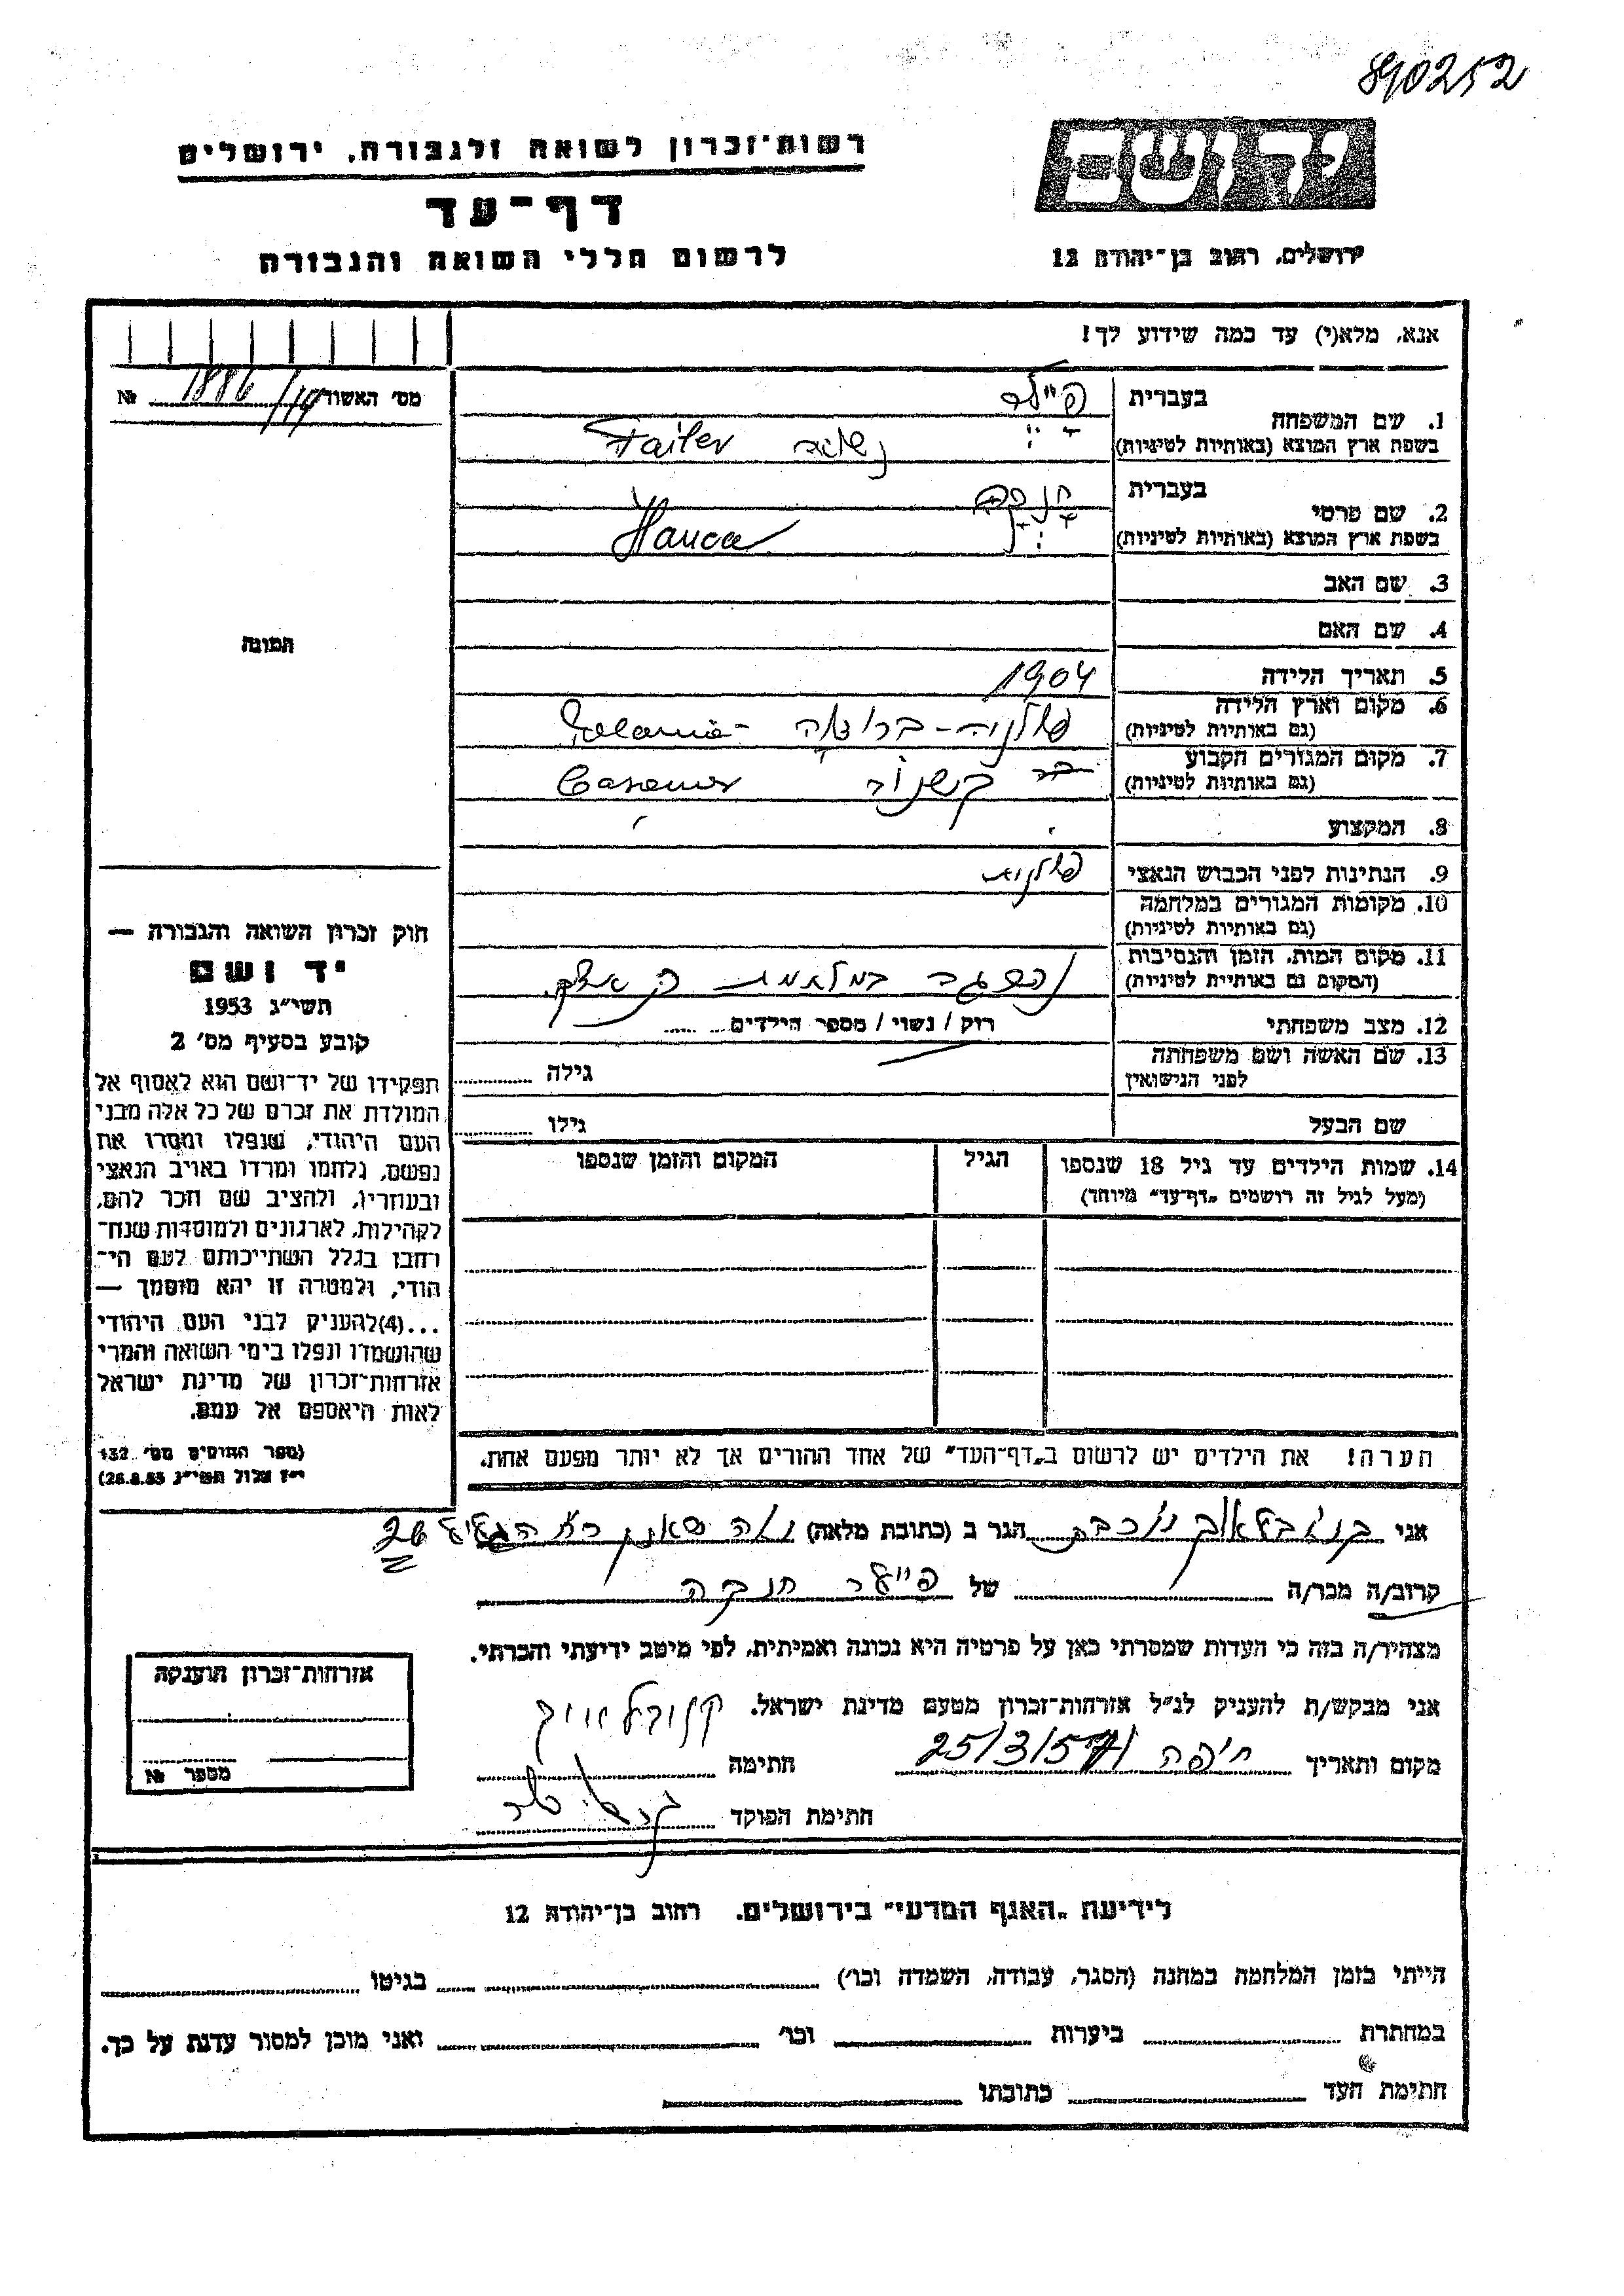 890252
יד ושם
רשות־זכרון לשואה ולגבורה, ירושלים
דף־עד
ירושלים, רחוב בן־יהודה 12
לרשום חללי השואה והגבורה
אנא, מלא(י) עד כמה שידוע לך!
מס' האשור 1886/14 №
בעברית
1. שם המשפחה
בשפת ארץ המוצא (באותיות לטיניות) Failer
בעברית
2. שם פרטי
בשפת ארץ המוצא (באותיות לטיניות) Hanca
3. שם האב
4. שם האם
התמונה
5. תאריך הלידה 1904
6. מקום וארץ הלידה
(גם באותיות לטיניות) פולניה -
7. מקום המגורים הקבוע
(גם באותיות לטיניות)
8. המקצוע
9. הנתינות לפני הכבוש הנאצי פולנית
10. מקומות המגורים במלחמה
(גם באותיות לטיניות)
11. מקום המות, הזמן והנסיבות
(המקום גם באותיות לטיניות)
12. מצב משפחתי רווק / נשוי / מספר הילדים
13. שם האשה ושם משפחתה
לפני הנישואין גילה
שם הבעל גילו
חוק זכרון השואה והגבורה —
יד ושם
תשי"ג 1953
קובע בסעיף מס' 2
תפקידו של יד־ושם הוא לאסוף אל
המולדת את זכרם של כל אלה מבני
העם היהודי, שנפלו ומסרו את
נפשם, נלחמו ומרדו באויב הנאצי
ובעוזריו, ולהציב שם וזכר להם,
לקהילות, לארגונים ולמוסדות שנח־
רבו בגלל השתייכותם לעם הי־
הודי, ולמטרה זו יהא מוסמך —
...(4)להעניק לבני העם היהודי
שהושמדו ונפלו בימי השואה והמרי
אזרחות־זכרון של מדינת ישראל
לאות היאספם אל עמם.
(ספר החוקים מס' 132
י"ז אלול תשי"ג 28.8.53)
14. שמות הילדים עד גיל 18 שנספו הגיל המקום והזמן שנספו
(מעל לגיל זה רושמים "דף־עד" מיוחד)
הערה! את הילדים יש לרשום ב"דף־העד" של אחד ההורים אך לא יותר מפעם אחת.
אני הגר ב (כתובת מלאה) 26
קרוב/ה מכר/ה של פיילר חנקה
מצהיר/ה בזה כי העדות שמסרתי כאן על פרטיה היא נכונה ואמיתית, לפי מיטב ידיעתי והכרתי.
אני מבקש/ת להעניק לנ"ל אזרחות־זכרון מטעם מדינת ישראל.
מקום ותאריך חיפה 25/3/57 חתימה
חתימת הפוקד
אזרחות־זכרון הוענקה
מספר №
לידיעת "האגף המדעי" בירושלים, רחוב בן־יהודה 12
הייתי בזמן המלחמה במחנה (הסגר, עבודה, השמדה וכו') בגיטו
במחתרת ביערות וכו' ואני מוכן למסור עדות על כך.
חתימת העד כתובתו